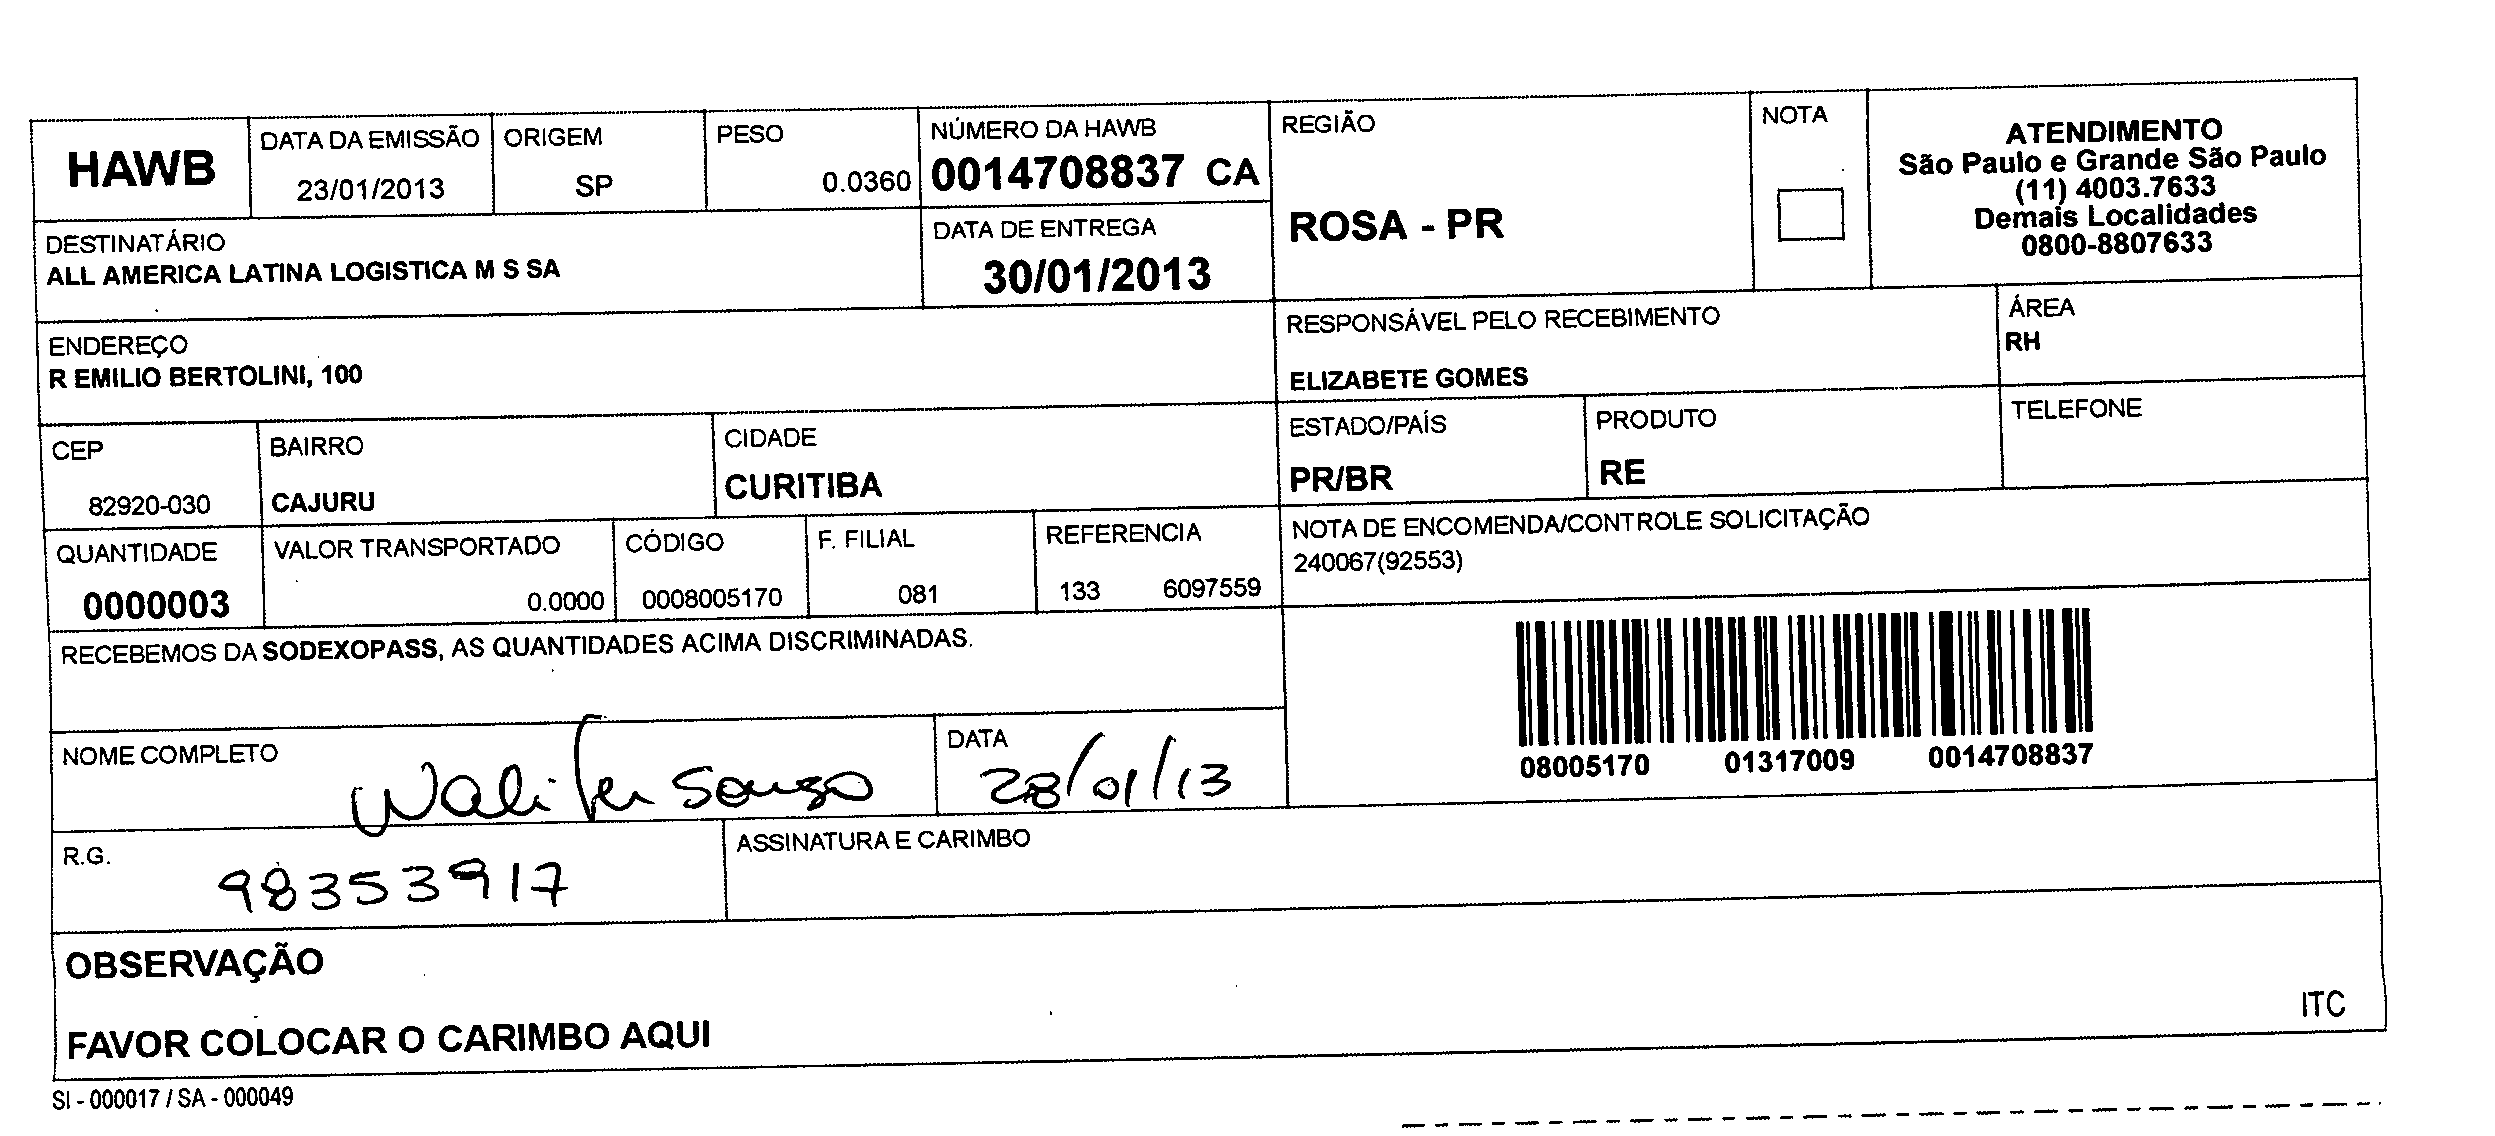 HAWB
DATA DA EMISSÃO
23/01/2013
ORIGEM
SP
PESO
0.0360
NÚMERO DA HAWB
0014708837 CA
REGIÃO
ROSA - PR
NOTA
ATENDIMENTO
São Paulo e Grande São Paulo
(11) 4003.7633
Demais Localidades
0800-8807633
DESTINATÁRIO
ALL AMERICA LATINA LOGISTICA M S SA
DATA DE ENTREGA
30/01/2013
ENDEREÇO
R EMILIO BERTOLINI, 100
RESPONSÁVEL PELO RECEBIMENTO
ELIZABETE GOMES
ÁREA
RH
CEP
82920-030
BAIRRO
CAJURU
CIDADE
CURITIBA
ESTADO/PAÍS
PR/BR
PRODUTO
RE
TELEFONE
QUANTIDADE
0000003
VALOR TRANSPORTADO
0.0000
CÓDIGO
0008005170
F. FILIAL
081
REFERENCIA
133 6097559
NOTA DE ENCOMENDA/CONTROLE SOLICITAÇÃO
240067(92553)
RECEBEMOS DA SODEXOPASS, AS QUANTIDADES ACIMA DISCRIMINADAS.
08005170 01317009 0014708837
NOME COMPLETO
Walifer Souza
DATA
28/01/13
R.G.
98353917
ASSINATURA E CARIMBO
OBSERVAÇÃO
FAVOR COLOCAR O CARIMBO AQUI
ITC
SI - 000017 / SA - 000049